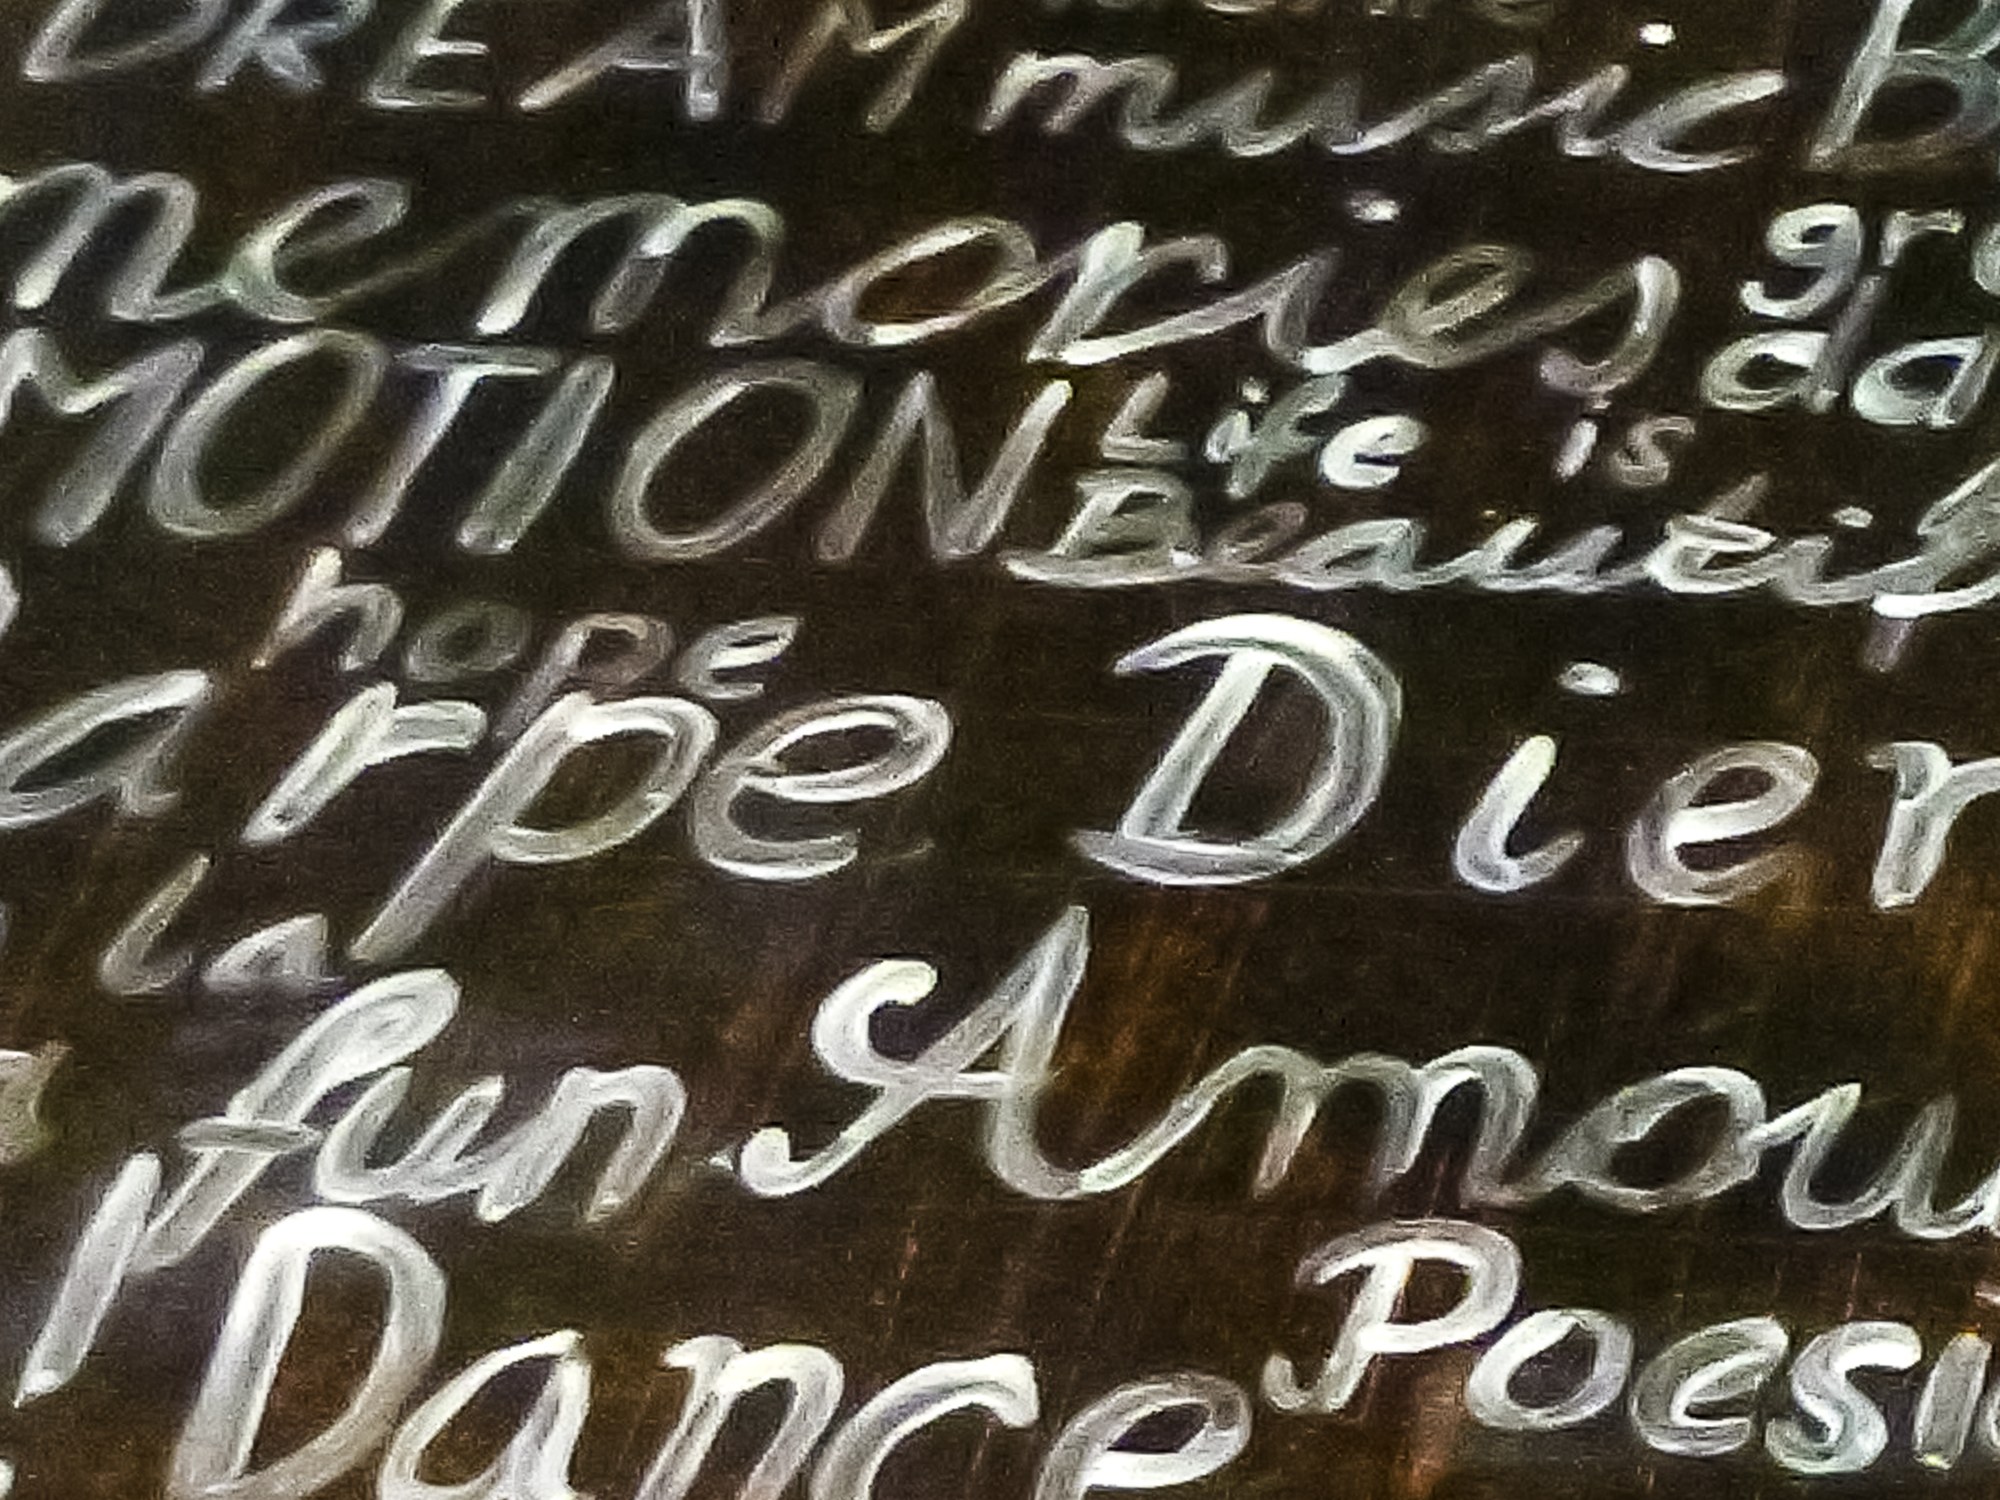 DREAM music
memories
MOTION Life is
Beautif
hope
arpe Diem
la
fun Amou
Dance Poesi